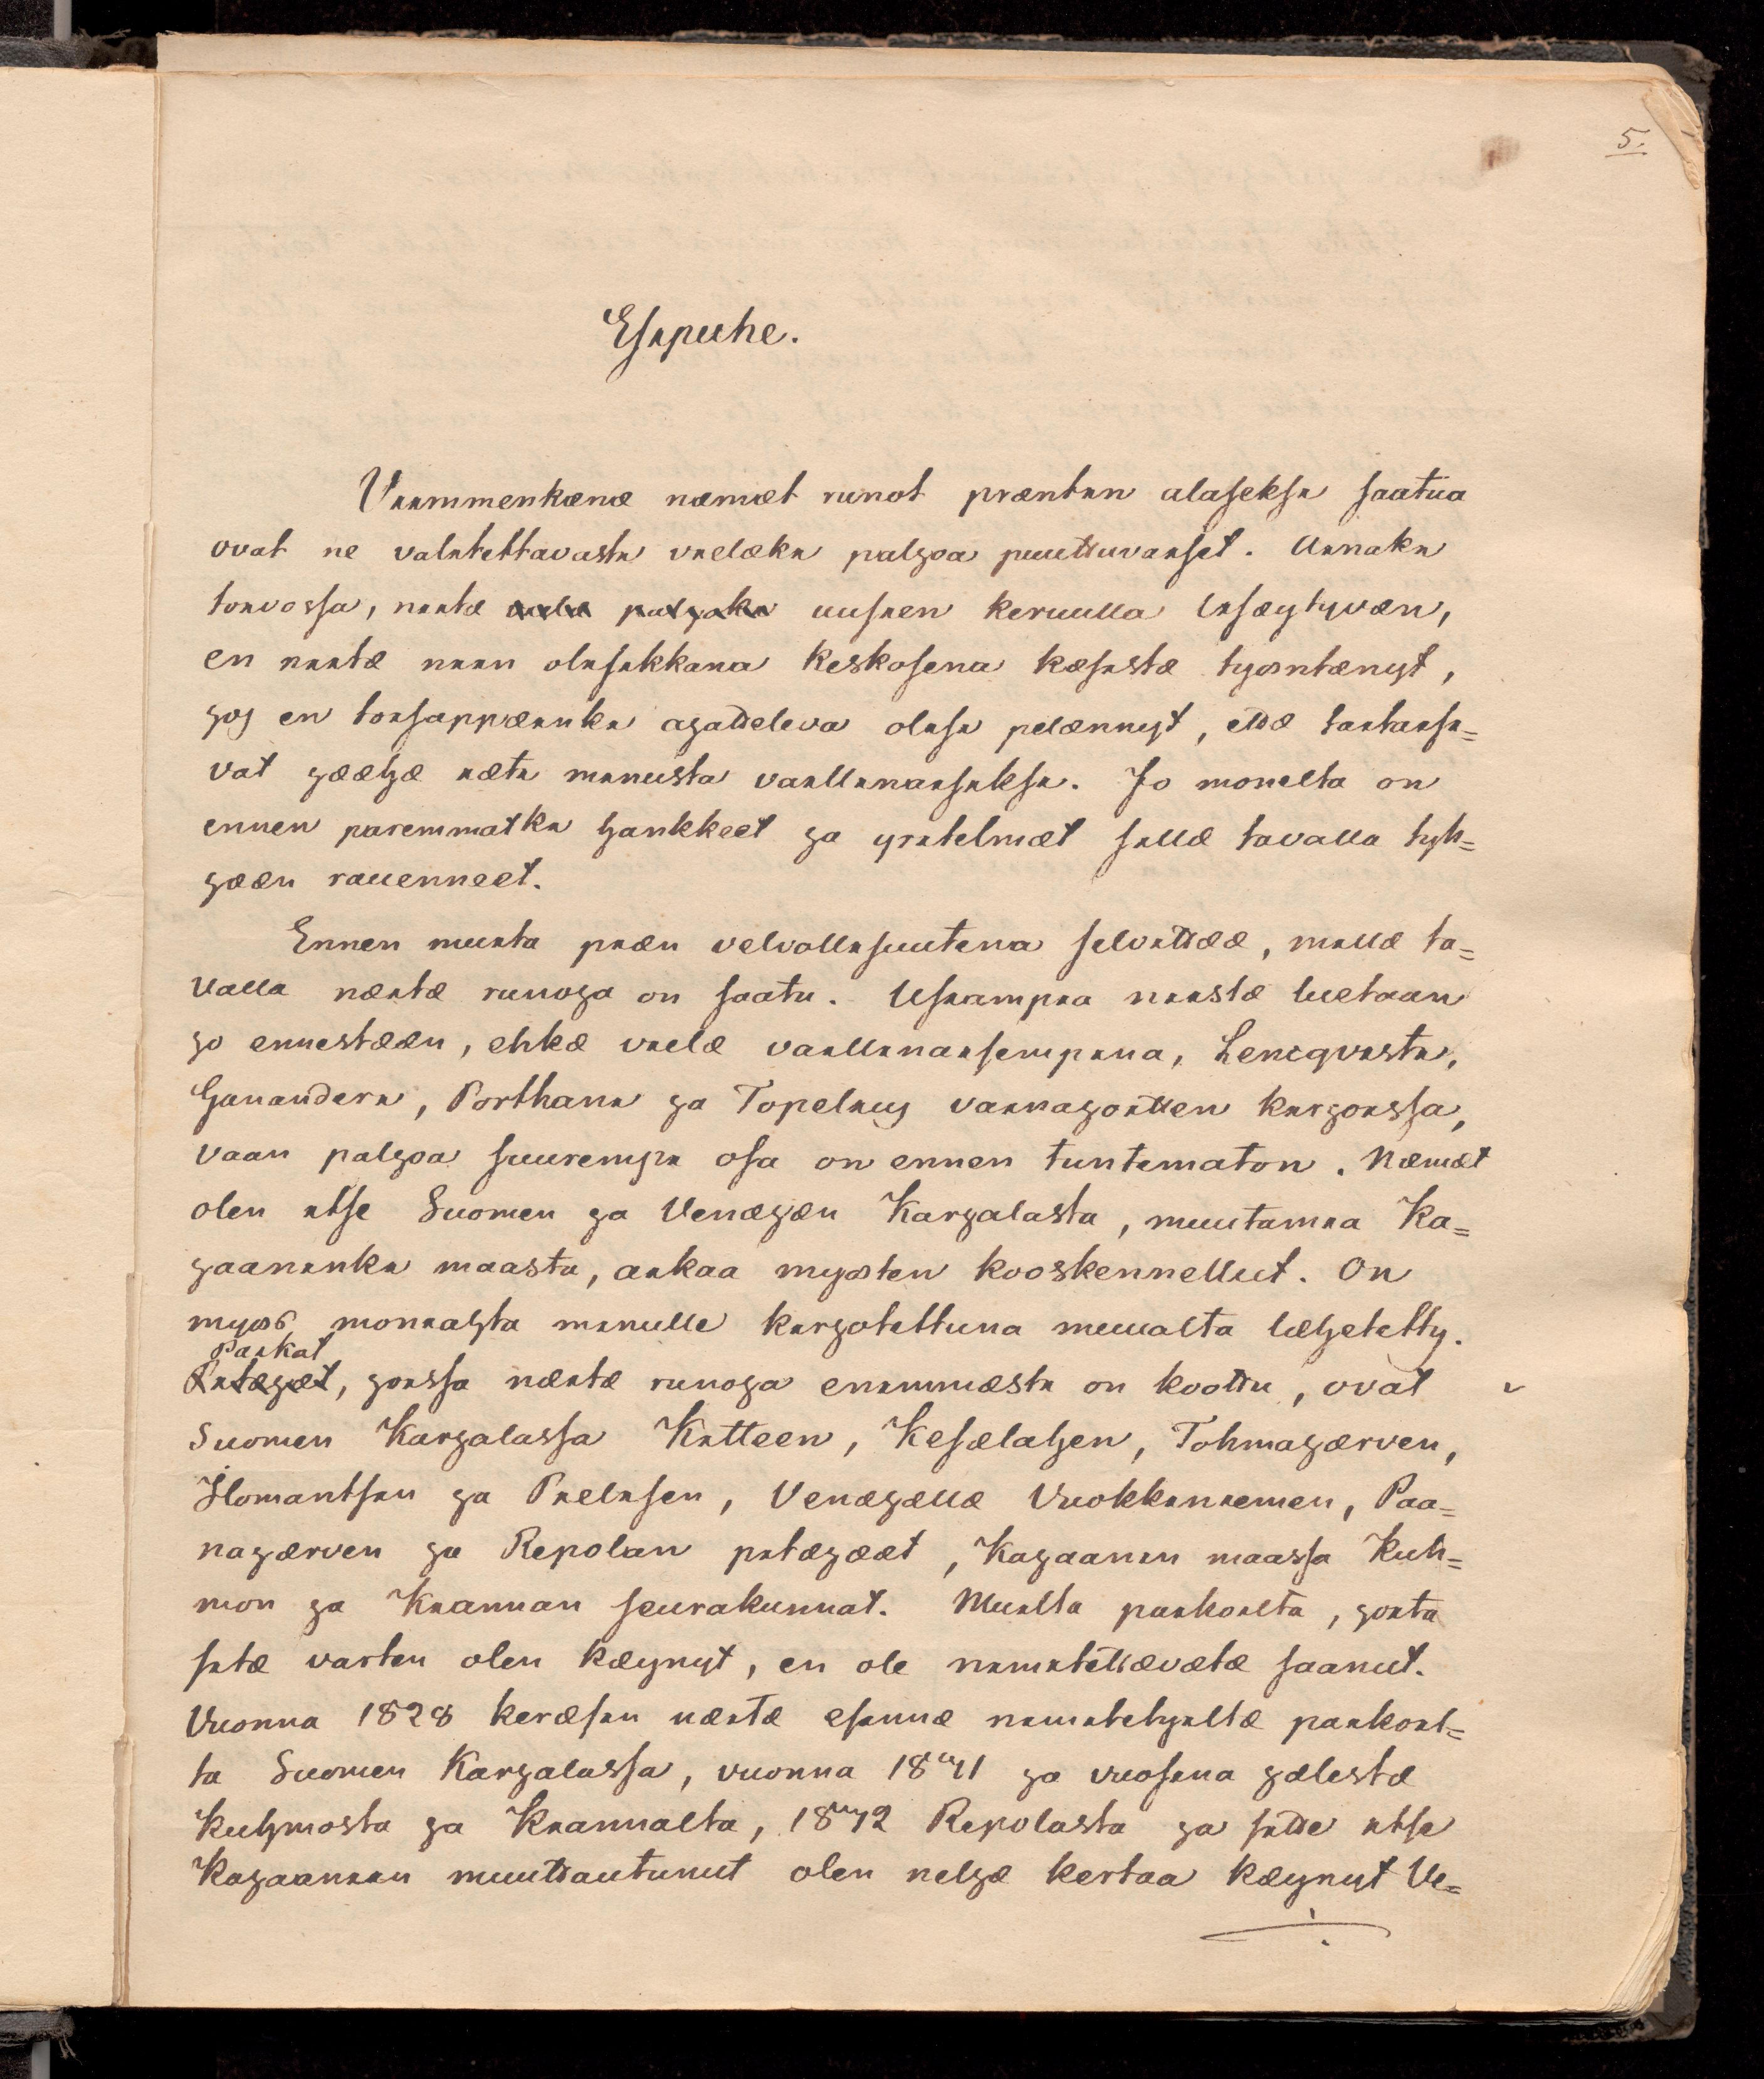 5.
Esipuhe.
Viimmenkänä nämät runot präntin alaseksi saatua
ovat ne valitettavasti vieläki paljoa puuttuvaiset. Ainaki
toivossa, niitä vielä paljoki uusien keruulla lisäytyvän,
en niitä niin olisikkana keskosena käsistä työntänyt,
jos en toisappäinki ajatteleva olisi pelännyt, että taitaisi=
vat jäähä iäti minusta vaillinaisiksi. Jo monelta on
ennen paremmatki hankkeet ja yritelmät sillä tavalla tyh=
jään rauenneet.
Ennen muita piän velvollisuutena selvittää, millä ta=
valla näitä runoja on saatu. Usiampia niistä luetaan
jo ennestään, ehkä vielä vaillinaisempina, Lenqvisti,
Gananderi, Porthani ja Topelius vainajoitten kirjoissa,
vaan paljoa suurempi osa on ennen tuntematon. Nämät
olen itse Suomen ja Venäjän Karjalasta, muutamia Ka=
jaaninki maasta, aikaa myöten kooskennellut. On
myös moniahta minulle kirjotettuna muualta lähetetty.
Paikat
Pitäjät, joissa näitä runoja enimmästi on koottu, ovat
Suomen Karjalassa Kitteen, Kesälahen, Tohmajärven,
Ilomantsin ja Pielisen, Venäjällä Vuokkiniemen, Paa=
najärven ja Repolan pitäjäät, Kajaanin maassa Kuh=
mon ja Kiannan seurakunnat. Muilta paikoilta, joita
sitä varten olen käynyt, en ole nimitettäväitä saanut.
Vuonna 1828 keräsin näitä esinnä nimitetyiltä paikoil=
ta Suomen Karjalassa, vuonna 1831 ja vuosina jälestä
Kuhmosta ja Kiannalta, 1832 Repolasta ja sitte itse
Kajaaniin muuttautunut olen neljä kertaa käynyt Ve=